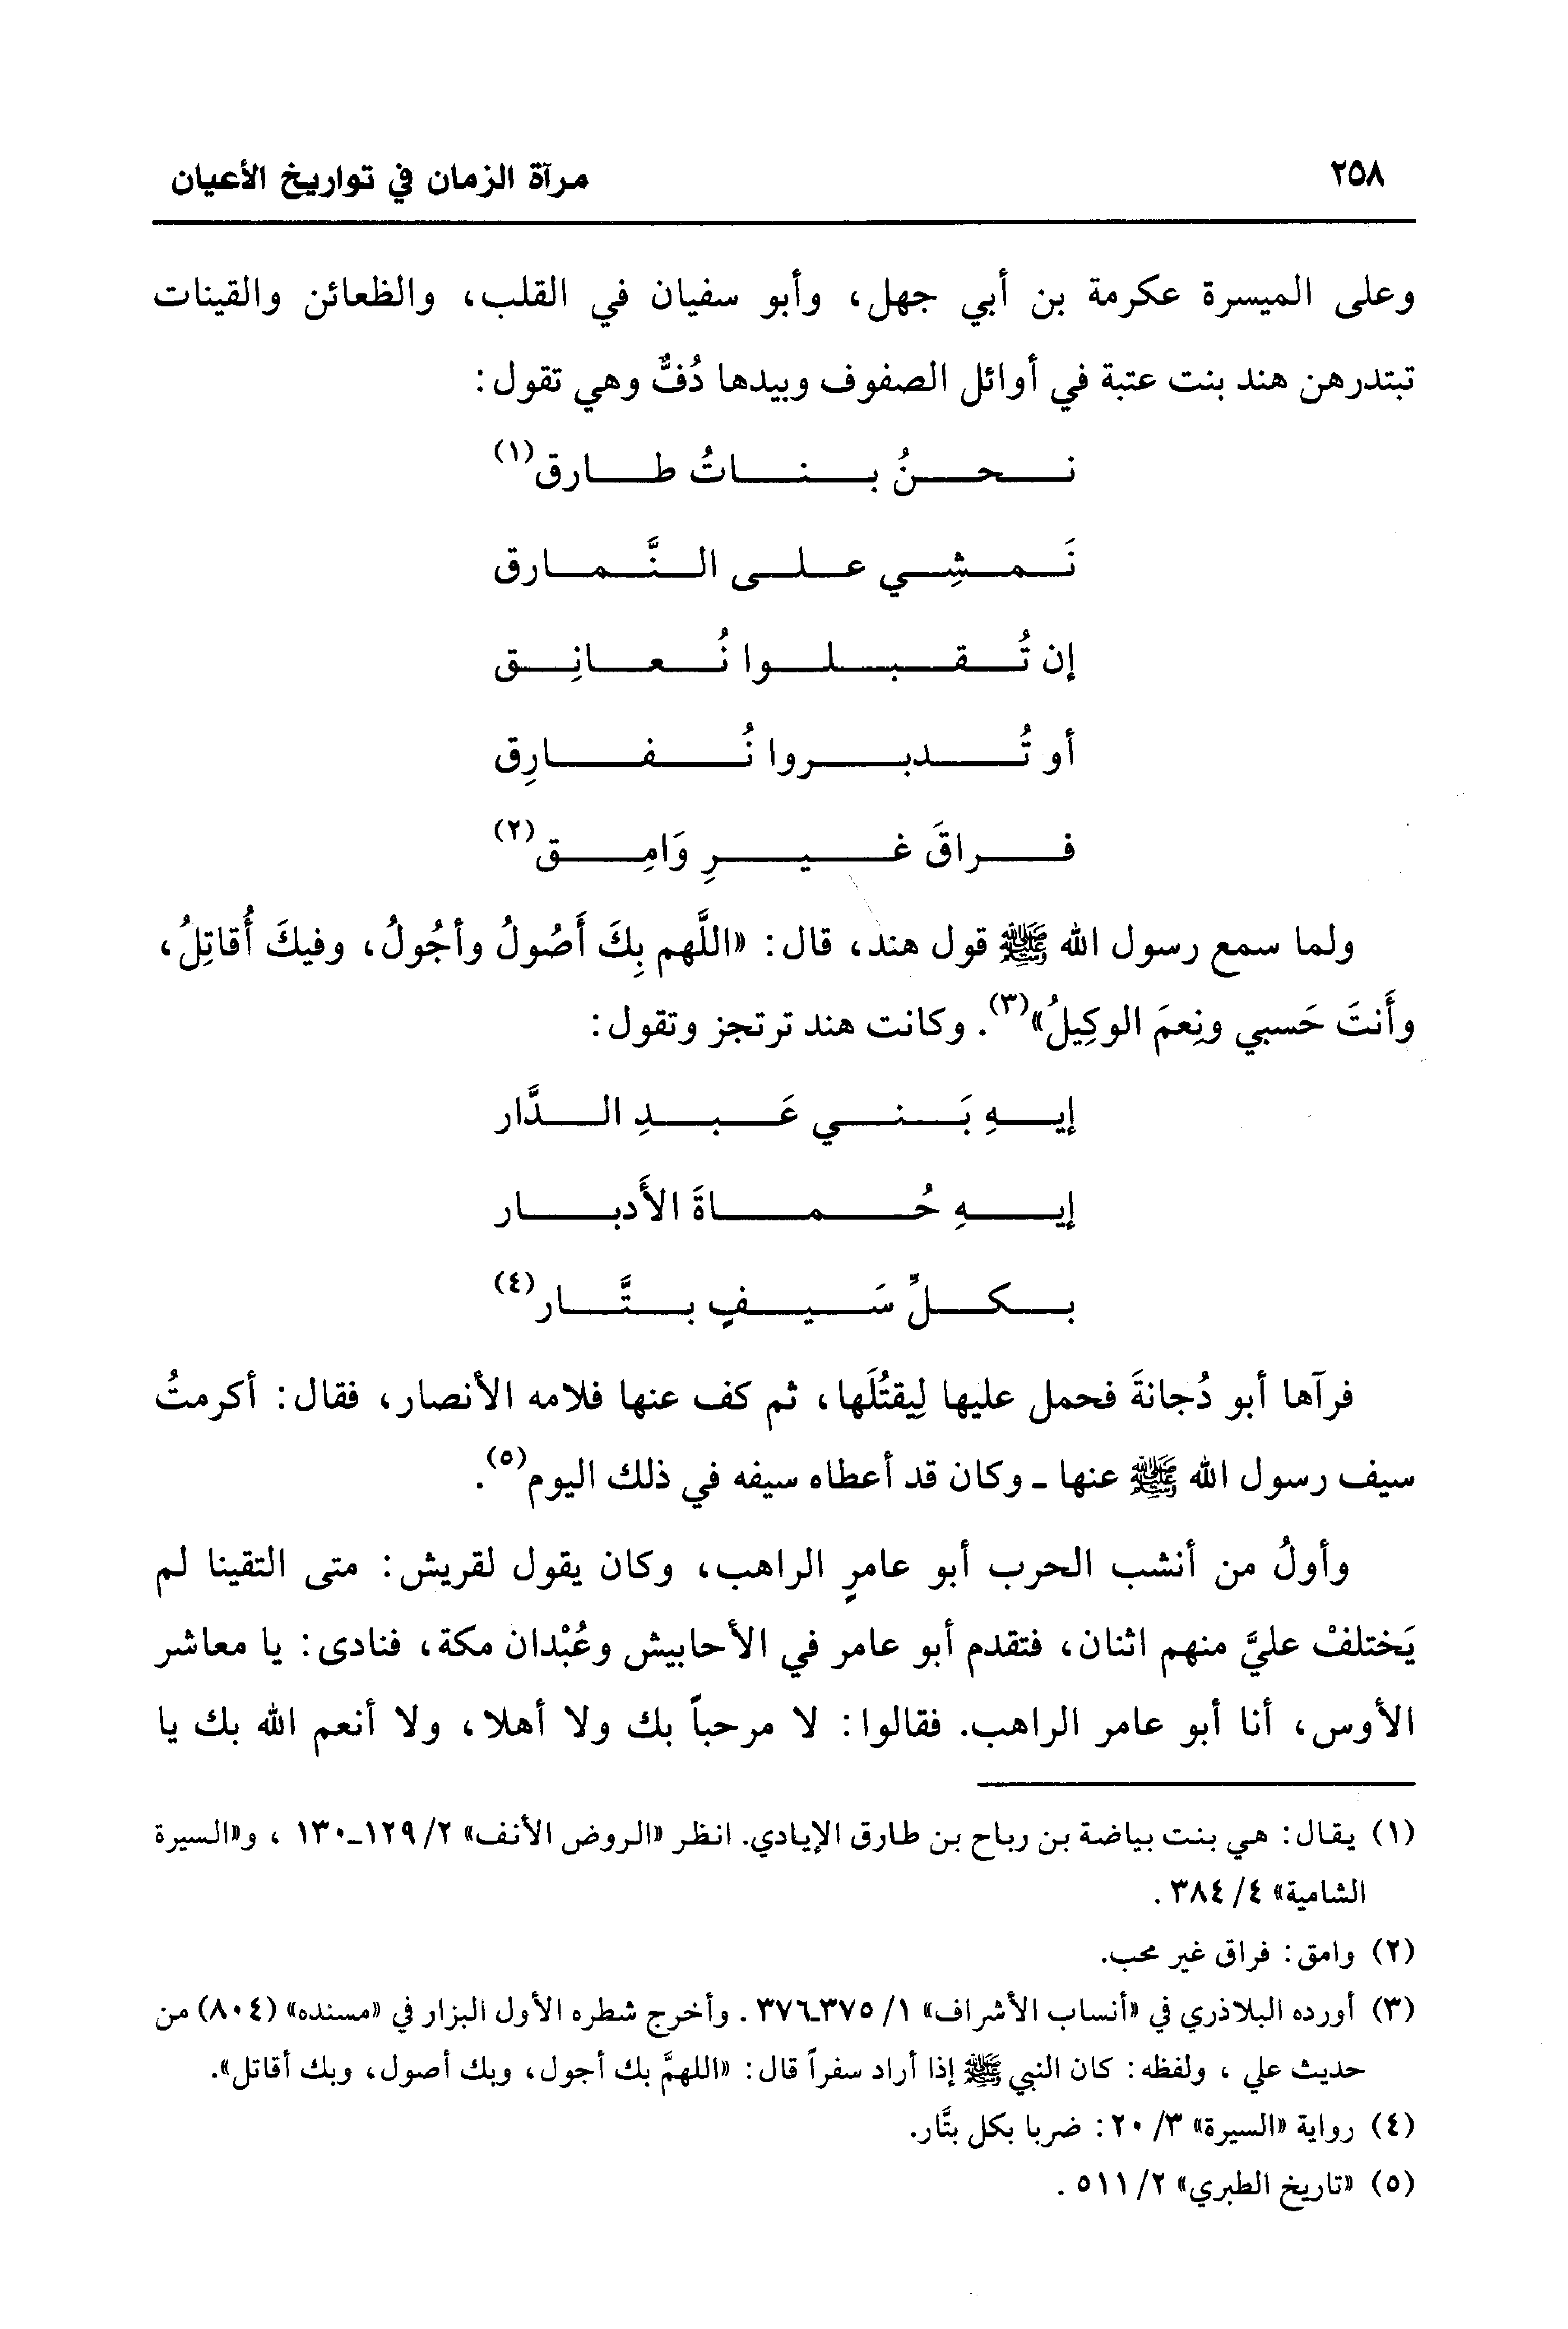 ٢٥٨
مرآة الزمان في تواريخ الأعيان
وعلى الميسرة عكرمة بن أبي جهل، وأبو سفيان في القلب، والظعائن والقينات
تبتدرهن هند بنت عتبة في أوائل الصفوف وبيدها دُفٌّ وهي تقول:
نحنُ بناتُ طارق(١)
نَمشِي على النَّمارق
إن تُقبلوا نُعانِق
أو تُدبروا نُفارِق
فراقَ غيرِ وَامِق(٢)
ولما سمع رسول الله ﷺ قول هند، قال: «اللَّهم بِكَ أَصُولُ وأجُولُ، وفيكَ أُقاتِلُ،
وأَنتَ حَسبي ونِعمَ الوكِيلُ»(٣). وكانت هند ترتجز وتقول:
إيهِ بَني عَبدِ الدَّار
إيهِ حُماةَ الأَدبار
بكلِّ سَيفٍ بتَّار(٤)
فرآها أبو دُجانةَ فحمل عليها لِيقتُلَها، ثم كف عنها فلامه الأنصار، فقال: أكرمتُ
سيف رسول الله ﷺ عنها - وكان قد أعطاه سيفه في ذلك اليوم(٥).
وأولُ من أنشب الحرب أبو عامرٍ الراهب، وكان يقول لقريش: متى التقينا لم
يَختلفْ عليَّ منهم اثنان، فتقدم أبو عامر في الأحابيش وعُبْدان مكة، فنادى: يا معاشر
الأوس، أنا أبو عامر الراهب. فقالوا: لا مرحباً بك ولا أهلا، ولا أنعم الله بك يا
(١) يقال: هي بنت بياضة بن رباح بن طارق الإيادي. انظر «الروض الأنف» ٢/ ١٢٩-١٣٠ ، و«السيرة
الشامية» ٤/ ٣٨٤ .
(٢) وامق: فراق غير محب.
(٣) أورده البلاذري في «أنساب الأشراف» ١/ ٣٧٥-٣٧٦ . وأخرج شطره الأول البزار في «مسنده» (٨٠٤) من
حديث علي ، ولفظه: كان النبي ﷺ إذا أراد سفراً قال: «اللهمَّ بك أجول، وبك أصول، وبك أقاتل».
(٤) رواية «السيرة» ٣/ ٢٠ : ضربا بكل بتَّار.
(٥) «تاريخ الطبري» ٢/ ٥١١ .